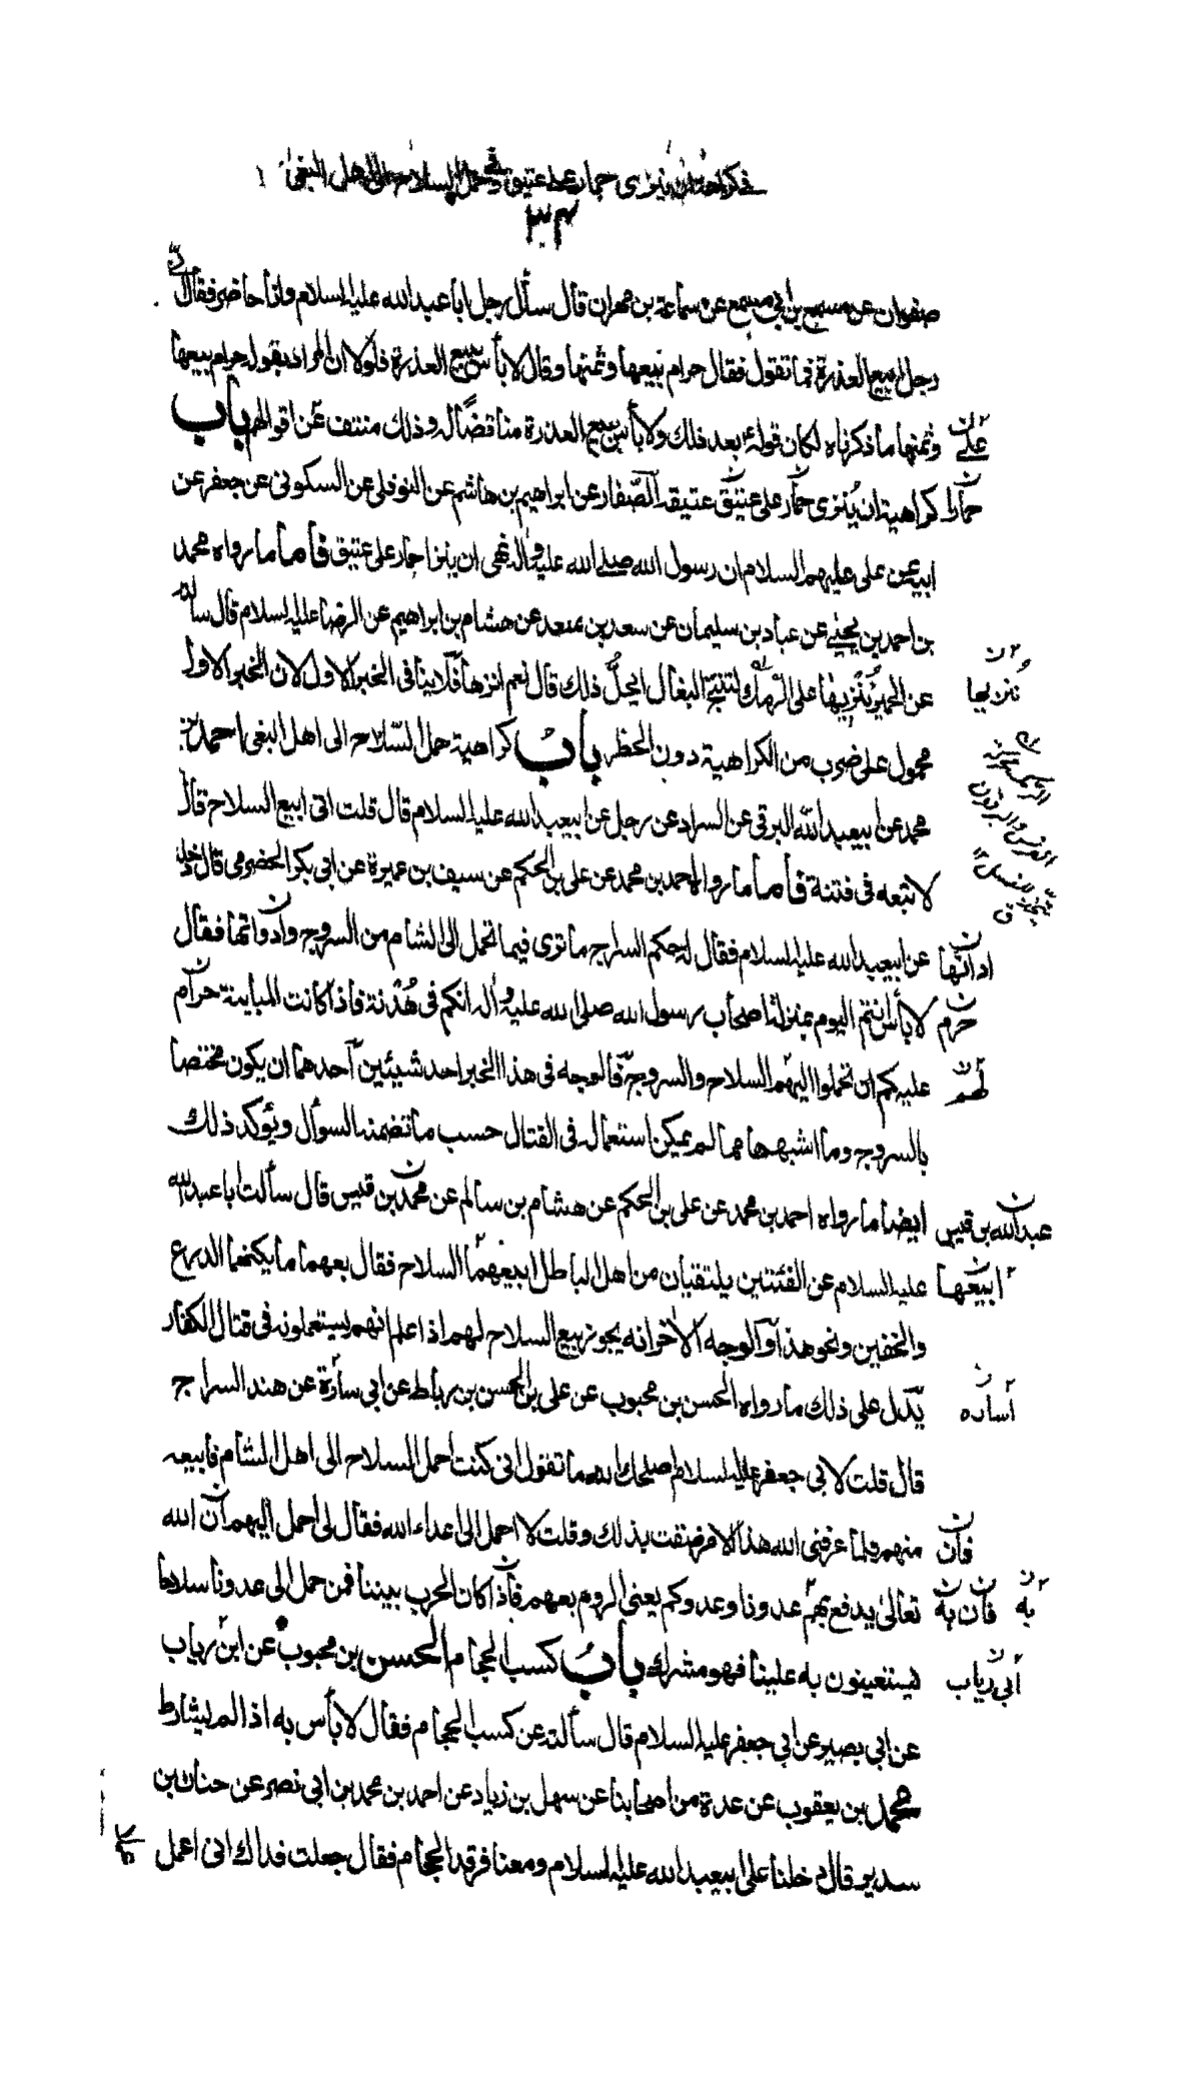 في كراهية ان ينزى حمار على عتيق وفي حمل السلاح الى اهل البغي
٣٤
صفوان عن مسمع بن ابي مسمع عن سماعة بن مهران قال سأل رجل ابا عبد الله عليه السلام وانا حاضر فقال اني
رجل ابيع العذرة فما تقول فقال حرام بيعها وثمنها وقال لا بأس ببيع العذرة فلولا ان المراد بقوله حرام بيعها
وثمنها ما ذكرناه لكان قوله بعد ذلك ولا بأس ببيع العذرة مناقضًا له وذلك منتف عن اقوالهم باب
على
كراهية ان يُنزى حمار على عتيق عتيقه الصفار عن ابراهيم بن هاشم عن النوفلي عن السكوني عن جعفر عن
حمارا
ابيه عن علي عليهم السلام ان رسول الله صلى الله عليه وآله نهى ان ينزا حمار على عتيق فأما ما رواه محمد
بن احمد بن يحيى عن عباد بن سليمان عن سعد بن سعد عن هشام بن ابراهيم عن الرضا عليه السلام قال سألته
عن الحمير ننزيها على الرمك لتنتج البغال ايحلّ ذلك قال نعم انزها فلا ينافى الخبر الاول لان الخبر الاول
ننزيها
محمول على ضرب من الكراهية دون الحظر بابُ كراهية حمل السّلاح الى اهل البغي احمد بن
محمد عن ابيعبد الله البرقي عن السراد عن رجل عن ابيعبد الله عليه السلام قال قلت اني ابيع السلاح قال
لا تبعه في فتنة فأما ما رواه احمد بن محمد عن علي بن الحكم عن سيف بن عميرة عن ابي بكر الحضرمي قال دخلنا
عن ابيعبد الله عليه السلام فقال له حكم السراج ما ترى فيما تحمل الى الشام من السروج وأدواتها فقال
اداتها
لا بأس انتم اليوم بمنزلة اصحاب رسول الله صلى الله عليه وآله انكم في هُدْنة فاذا كانت المباينة حرام
حرم
عليكم ان تحملوا اليهم السلاح والسروج فالوجه في هذا الخبر احد شيئين احدهما ان يكون مختصا
لهم
بالسروج وما اشبهها مما لم يمكن استعماله في القتال حسب ما تضمنه السوأل ويؤكد ذلك
ايضا ما رواه احمد بن محمد عن علي بن الحكم عن هشام بن سالم عن محمد بن قيس قال سألت ابا عبد الله
عبد الله بن قيس
عليه السلام عن الفئتين يلتقيان من اهل الباطل ابيعهما السلاح فقال بعهما ما يكنهما الدرع
ابيعها
والخفين ونحو هذا والوجه الاخر انه يجوز بيع السلاح لهم اذا علم انهم يستعملونه في قتال الكفار
يدل على ذلك ما رواه الحسن بن محبوب عن علي بن الحسن بن رباط عن ابي سارة عن هند السراج
أساره
قال قلت لابي جعفر عليه السلام اصلحك الله ما تقول اني كنت احمل السلاح الى اهل الشام فابيعه
منهم فلما عرفني الله هذا الامر ضقت بذلك وقلت لا احمل الى اعداء الله فقال لى احمل اليهم ان الله
فان
تعالى يدفع بهم عدونا وعدوكم يعني الروم بعهم فاذا كان الحرب بيننا فمن حمل الى عدونا سلاحا
به فان به
يستعينون به علينا فهو مشرك بابُ كسب الحجام الحسن بن محبوب عن ابن رياب
ابي رياب
عن ابي بصير عن ابي جعفر عليه السلام قال سألته عن كسب الحجام فقال لا بأس به اذا لم يشارط
محمد بن يعقوب عن عدة من اصحابنا عن سهل بن زياد عن احمد بن محمد بن ابي نصر عن حنان بن
سدير قال دخلنا على ابيعبد الله عليه السلام ومعنا فرقد الحجام فقال جعلت فداك اني اعمل